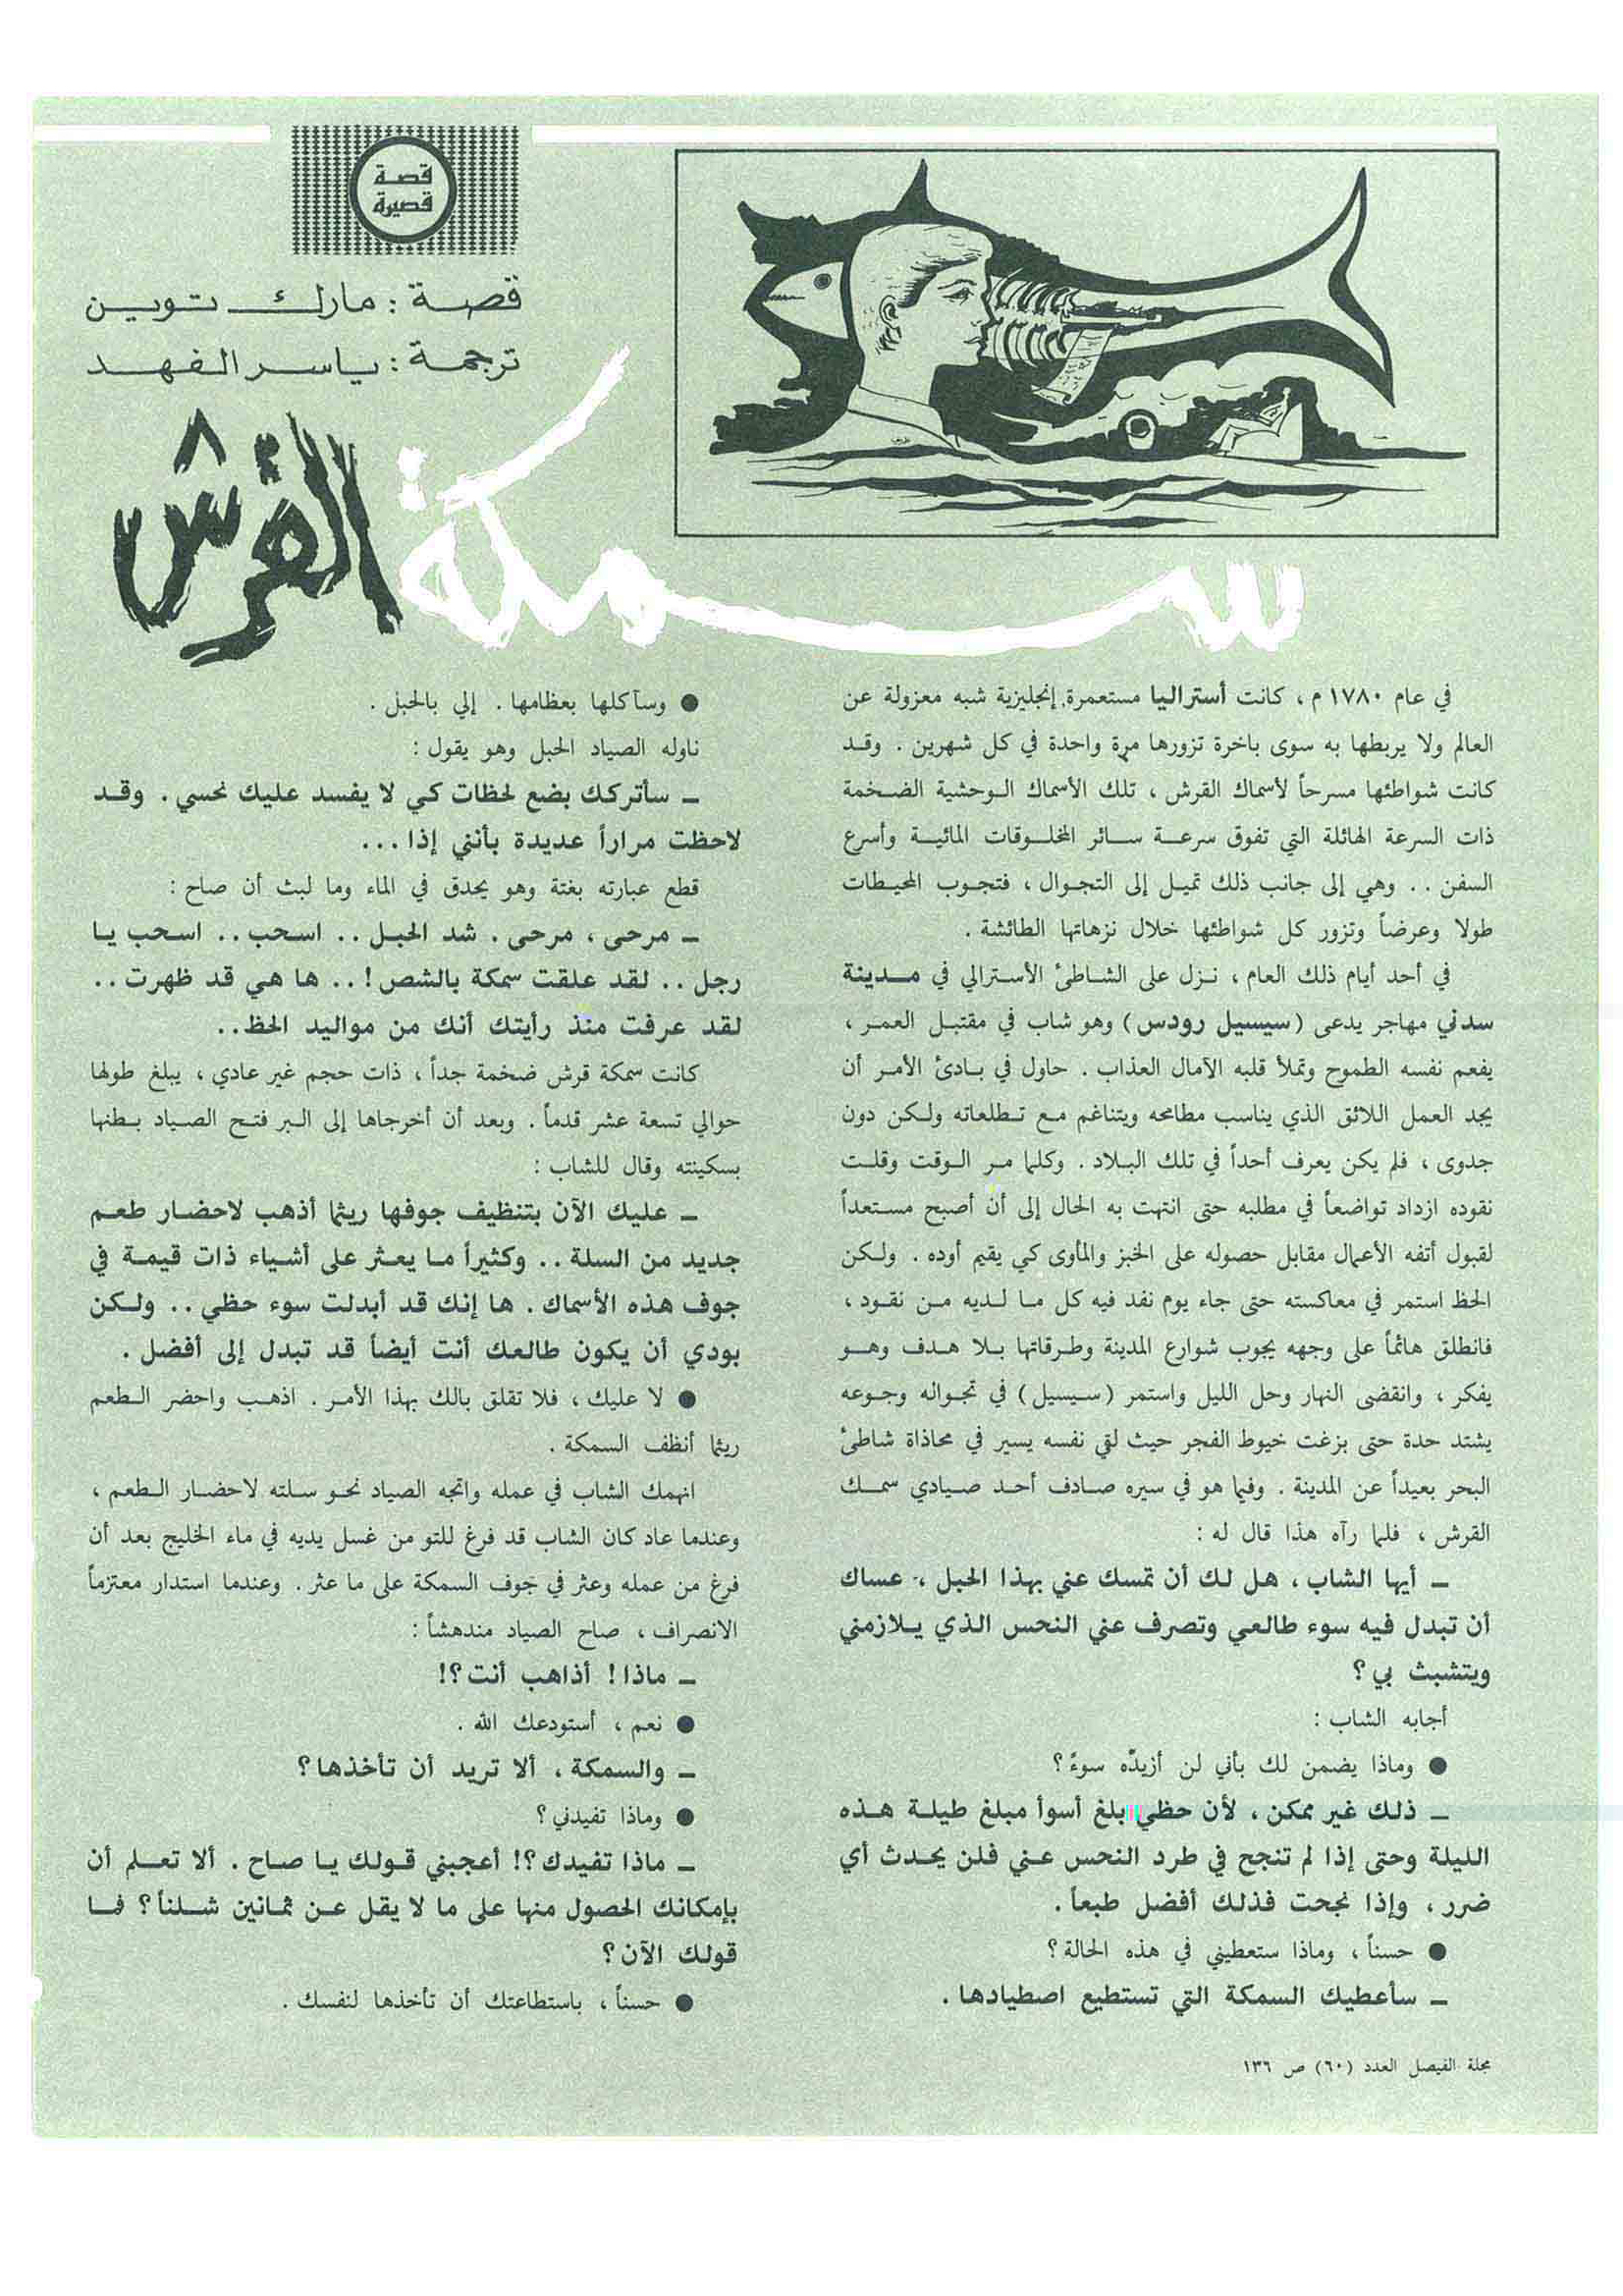 قصة
قصيرة
قصة : مارك توين
ترجمة : ياسر الفهد
سمكة القرش
في عام ١٧٨٠ م ، كانت أستراليا مستعمرة إنجليزية شبه معزولة عن
العالم ولا يربطها به سوى باخرة تزورها مرة واحدة في كل شهرين . وقد
كانت شواطئها مسرحاً لأسماك القرش ، تلك الأسماك الوحشية الضخمة
ذات السرعة الهائلة التي تفوق سرعة سائر المخلوقات المائية وأسرع
السفن . . وهي إلى جانب ذلك تميل إلى التجوال ، فتجوب المحيطات
طولا وعرضاً وتزور كل شواطئها خلال نزهاتها الطائشة .
في أحد أيام ذلك العام ، نزل على الشاطئ الأسترالي في مدينة
سدني مهاجر يدعى (سيسيل رودس) وهو شاب في مقتبل العمر ،
يفعم نفسه الطموح وتملأ قلبه الآمال العذاب . حاول في بادئ الأمر أن
يجد العمل اللائق الذي يناسب مطامحه ويتناغم مع تطلعاته ولكن دون
جدوى ، فلم يكن يعرف أحداً في تلك البلاد . وكلما مر الوقت وقلت
نقوده ازداد تواضعاً في مطلبه حتى انتهت به الحال إلى أن أصبح مستعداً
لقبول أتفه الأعمال مقابل حصوله على الخبز والمأوى كي يقيم أوده . ولكن
الحظ استمر في معاكسته حتى جاء يوم نفد فيه كل ما لديه من نقود ،
فانطلق هائماً على وجهه يجوب شوارع المدينة وطرقاتها بلا هدف وهو
يفكر ، وانقضى النهار وحل الليل واستمر (سيسيل) في تجواله وجوعه
يشتد حدة حتى بزغت خيوط الفجر حيث لقي نفسه يسير في محاذاة شاطئ
البحر بعيداً عن المدينة . وفيما هو في سيره صادف أحد صيادي سمك
القرش ، فلما رآه هذا قال له :
ــ أيها الشاب ، هل لك أن تمسك عني بهذا الحبل ، عساك
أن تبدل فيه سوء طالعي وتصرف عني النحس الذي يلازمني
ويتشبث بي ؟
أجابه الشاب :
● وماذا يضمن لك بأني لن أزيدّه سوءً ؟
ــ ذلك غير ممكن ، لأن حظي بلغ أسوأ مبلغ طيلة هذه
الليلة وحتى إذا لم تنجح في طرد النحس عني فلن يحدث أي
ضرر ، وإذا نجحت فذلك أفضل طبعاً .
● حسناً ، وماذا ستعطيني في هذه الحالة ؟
ــ سأعطيك السمكة التي تستطيع اصطيادها .
● وسآكلها بعظامها . إلي بالحبل .
ناوله الصياد الحبل وهو يقول :
ــ سأتركك بضع لحظات كي لا يفسد عليك نحسي . وقد
لاحظت مراراً عديدة بأنني إذا . . .
قطع عبارته بغتة وهو يحدق في الماء وما لبث أن صاح :
ــ مرحى ، مرحى . شد الحبل . . اسحب . . اسحب يا
رجل . . لقد علقت سمكة بالشص ! . . ها هي قد ظهرت . .
لقد عرفت منذ رأيتك أنك من مواليد الحظ . .
كانت سمكة قرش ضخمة جداً ، ذات حجم غير عادي ، يبلغ طولها
حوالي تسعة عشر قدماً . وبعد أن أخرجاها إلى البر فتح الصياد بطنها
بسكينته وقال للشاب :
ــ عليك الآن بتنظيف جوفها ريثما أذهب لاحضار طعم
جديد من السلة . . وكثيراً ما يعثر على أشياء ذات قيمة في
جوف هذه الأسماك . ها إنك قد أبدلت سوء حظي . . ولكن
بودي أن يكون طالعك أنت أيضاً قد تبدل إلى أفضل .
● لا عليك ، فلا تقلق بالك بهذا الأمر . اذهب واحضر الطعم
ريثما أنظف السمكة .
انهمك الشاب في عمله واتجه الصياد نحو سلته لاحضار الطعم ،
وعندما عاد كان الشاب قد فرغ للتو من غسل يديه في ماء الخليج بعد أن
فرغ من عمله وعثر في جوف السمكة على ما عثر . وعندما استدار معتزماً
الانصراف ، صاح الصياد مندهشاً :
ــ ماذا ! أذاهب أنت ؟!
● نعم ، أستودعك الله .
ــ والسمكة ، ألا تريد أن تأخذها ؟
● وماذا تفيدني ؟
ــ ماذا تفيدك ؟! أعجبني قولك يا صاح . ألا تعلم أن
بإمكانك الحصول منها على ما لا يقل عن ثمانين شلناً ؟ فما
قولك الآن ؟
● حسناً ، باستطاعتك أن تأخذها لنفسك .
مجلة الفيصل العدد (٦٠) ص ١٣٦